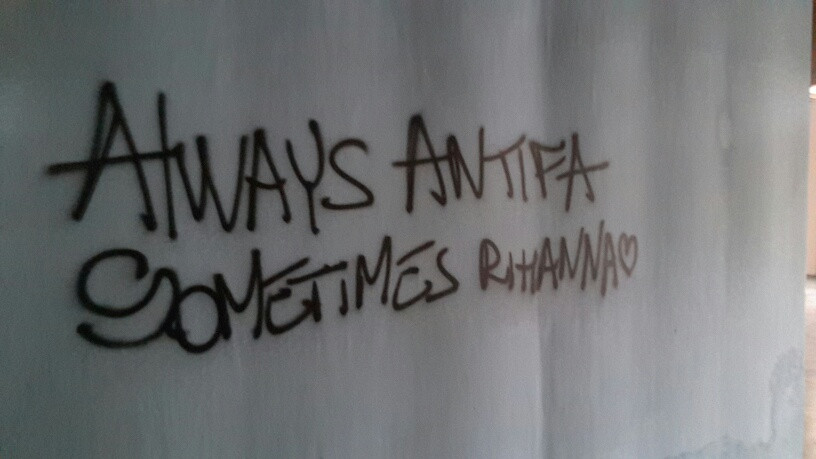 ALWAYS ANTIFA
SOMETIMES RIHANNA♡